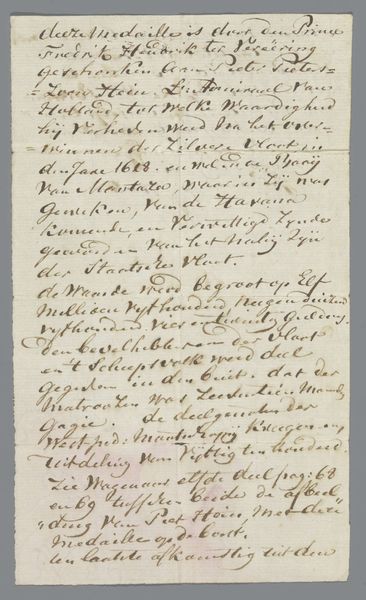 deeze Medaille is door den Prins
Fredrik Hendrik ter Vereëring
geschonken aan Pieter Pieters-
=Zoon Hein. Lt Admiraal van
Holland, tot welke Waardigheid
hij Verheven werd na het over-
=winnen der Zilvere Vloot, in
den Jare 1628. en wel in de Baaij
van Mantaza, waar in Zij was
Geweken, van de Havana
komende, en Verwittigd Zynde
geworden van het Nabij Zijn
der Staatsche Vloot.
de Waarde werd begroot op Elf
Millioen Vyfhonderd Negenduizend
vyfhonderd Vier en twintig Guldens.
den bevelhebberen der Vloot
en 't Scheepsvolk werd deel
gegeven in den buit. dat der
Matroozen was Zeventien Maanden
Gagie. de deelgenoten der
West Ind: Maatschappij kreegen eene
uitdeling van Vyftig ten honderd.
Zie Wagenaar elfde deel pag: 68
en 69 tusschen beide de afbeel
"ding van Piet Hein, met deze
Medaille op de borst.
ten laatste afkomstig uit den